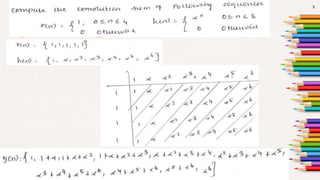 compute the correlation sum of following sequences
x(n) = { 1, 0≤n≤4 h(n) = { αⁿ 0≤n≤6
0 otherwise 0 otherwise
x(n) = {1,1,1,1,1}
h(n) = {1, α, α², α³, α⁴, α⁵, α⁶}
1 α α² α³ α⁴ α⁵ α⁶
1 1 α α² α³ α⁴ α⁵ α⁶
1 1 α α² α³ α⁴ α⁵ α⁶
1 1 α α² α³ α⁴ α⁵ α⁶
1 1 α α² α³ α⁴ α⁵ α⁶
1 1 α α² α³ α⁴ α⁵ α⁶
y(n) = {1, 1+α, 1+α+α², 1+α+α²+α³, α+α²+α³+α⁴, α²+α³+α⁴+α⁵,
α³+α⁴+α⁵+α⁶, α⁴+α⁵+α⁶, α⁵+α⁶, α⁶}